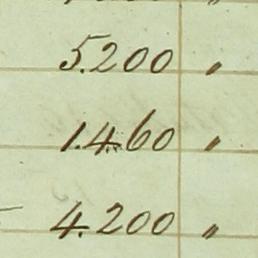 5.200 "
1.460 "
4.200 "